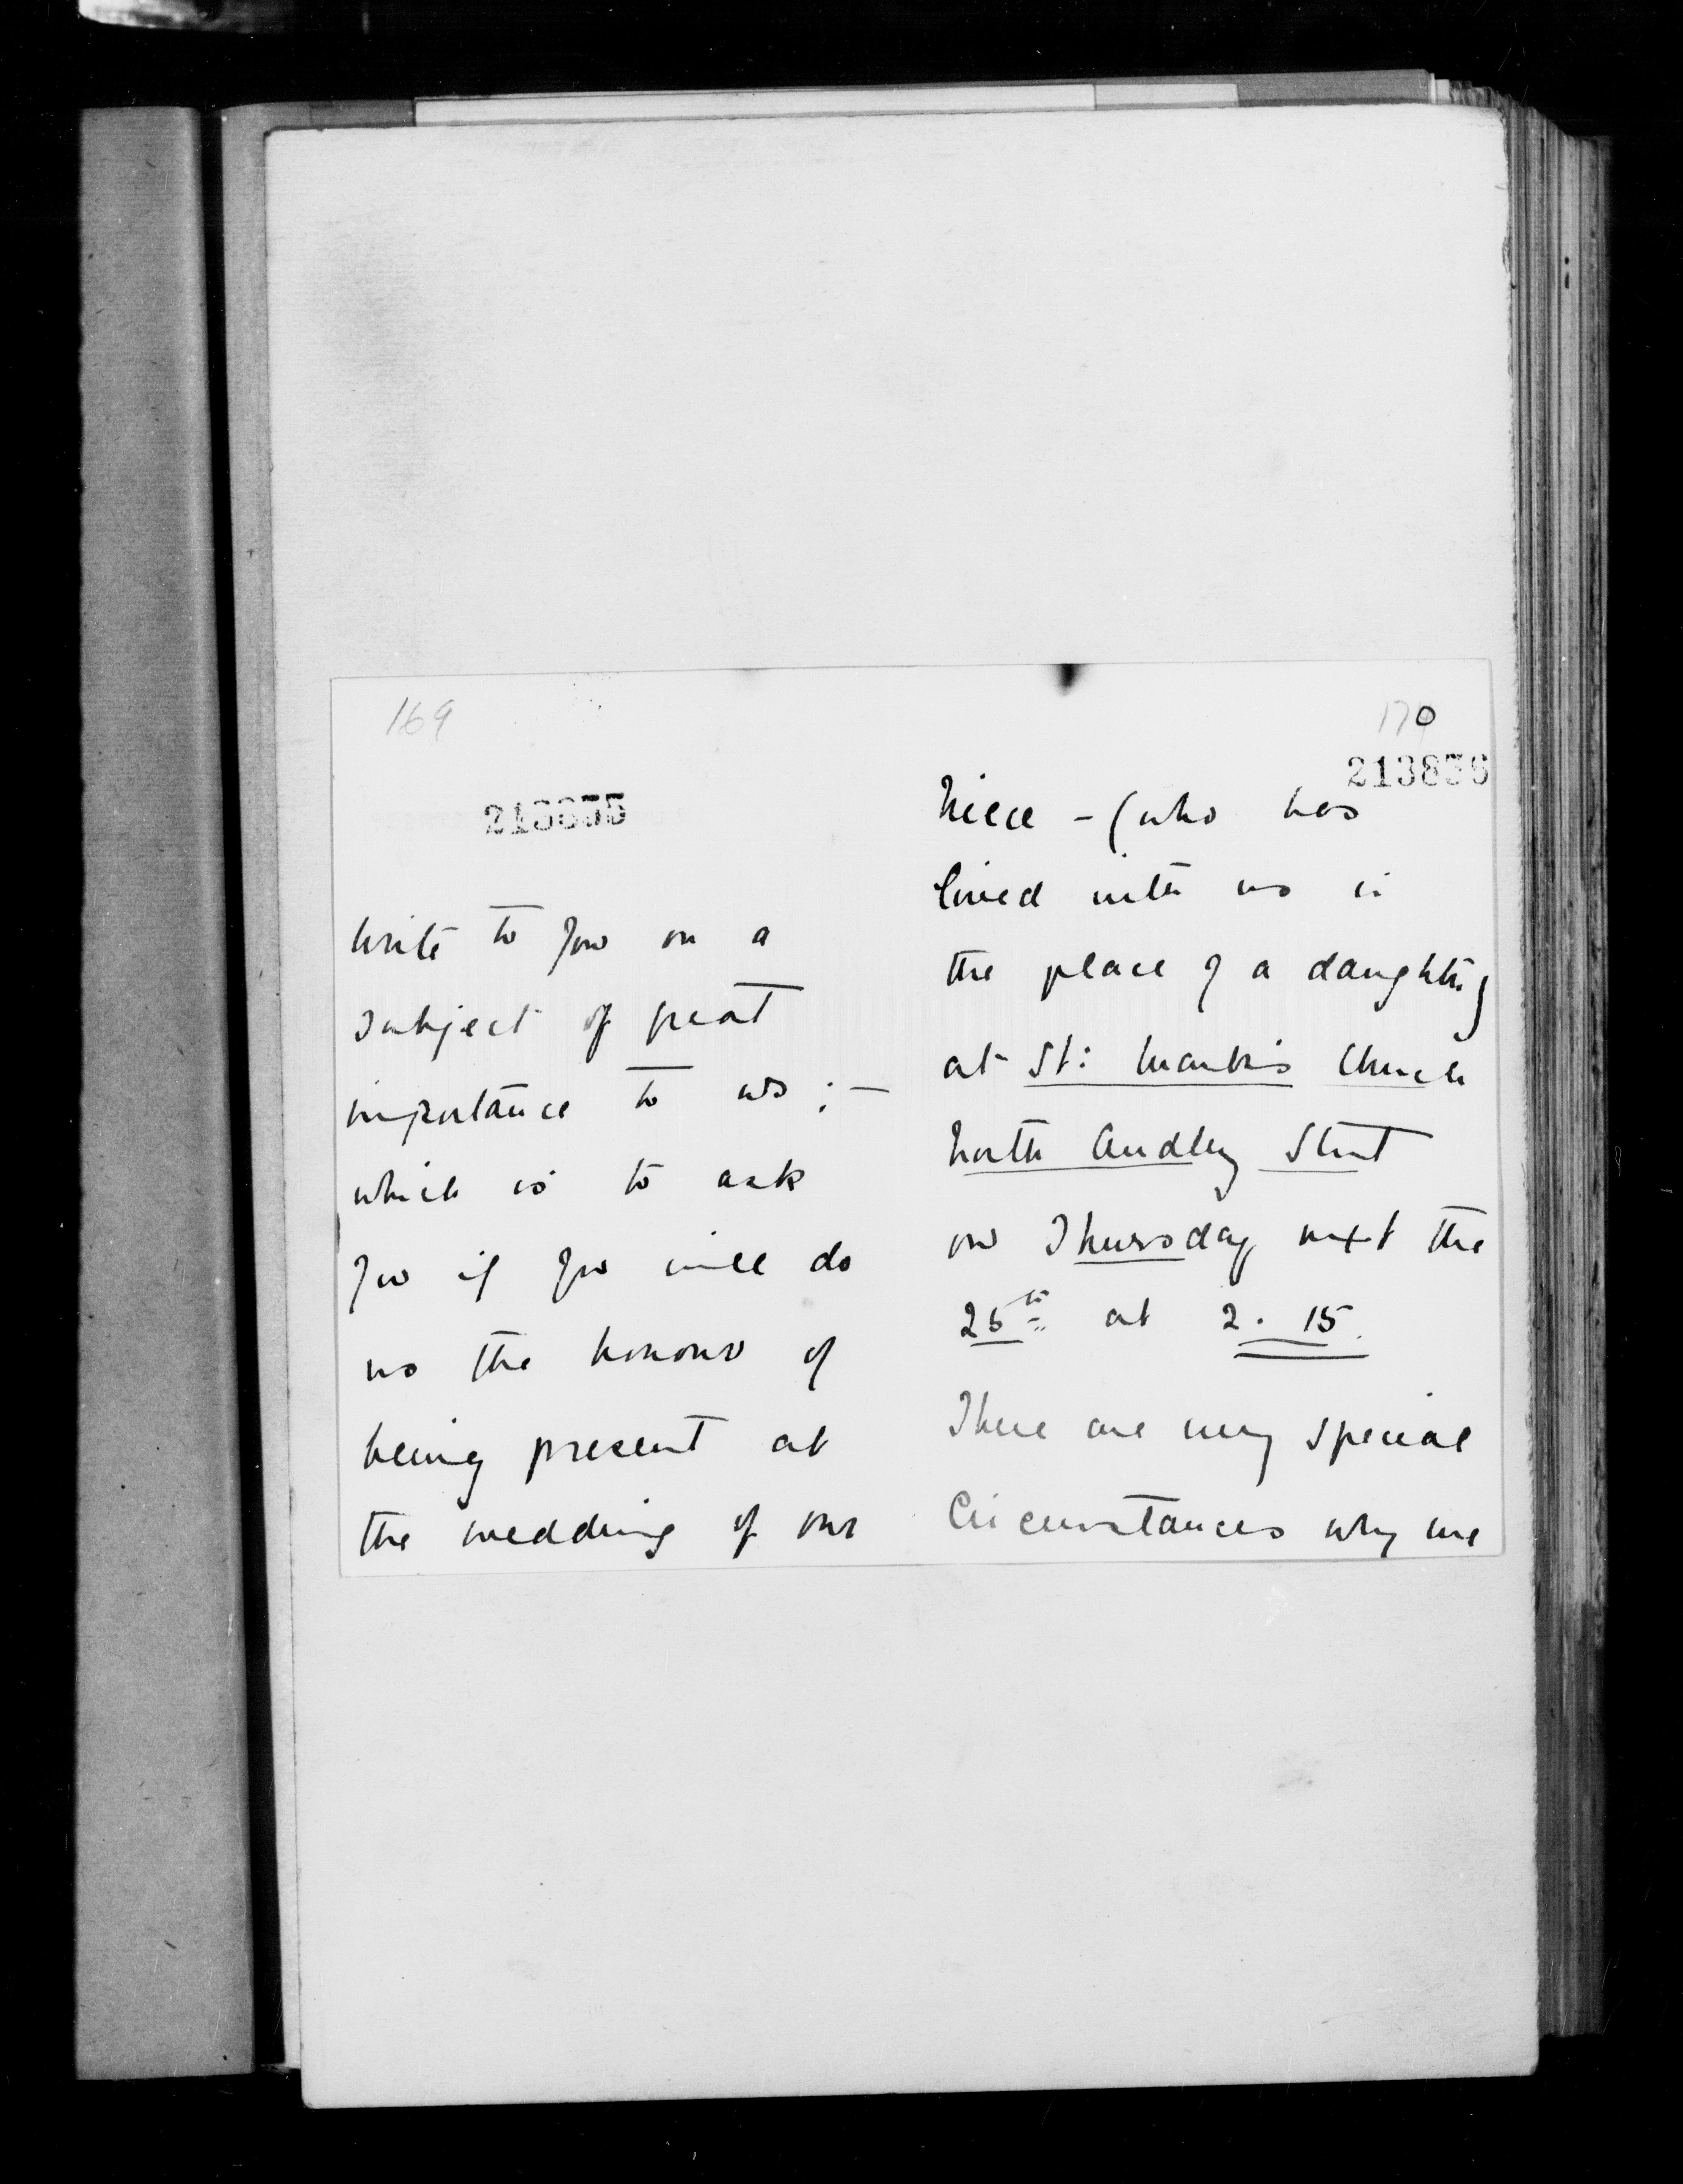 169
213835
write to you on a
subject of great
importance to us :—
which is to ask
you if you will do
us the honour of
being present at
the wedding of our
170
213836
niece - (who has
lived with us in
the place of a daughter)
at St: Mark's Church
North Audley Street
on Thursday next the
25th at 2. 15.
There are very special
Circumstances why we